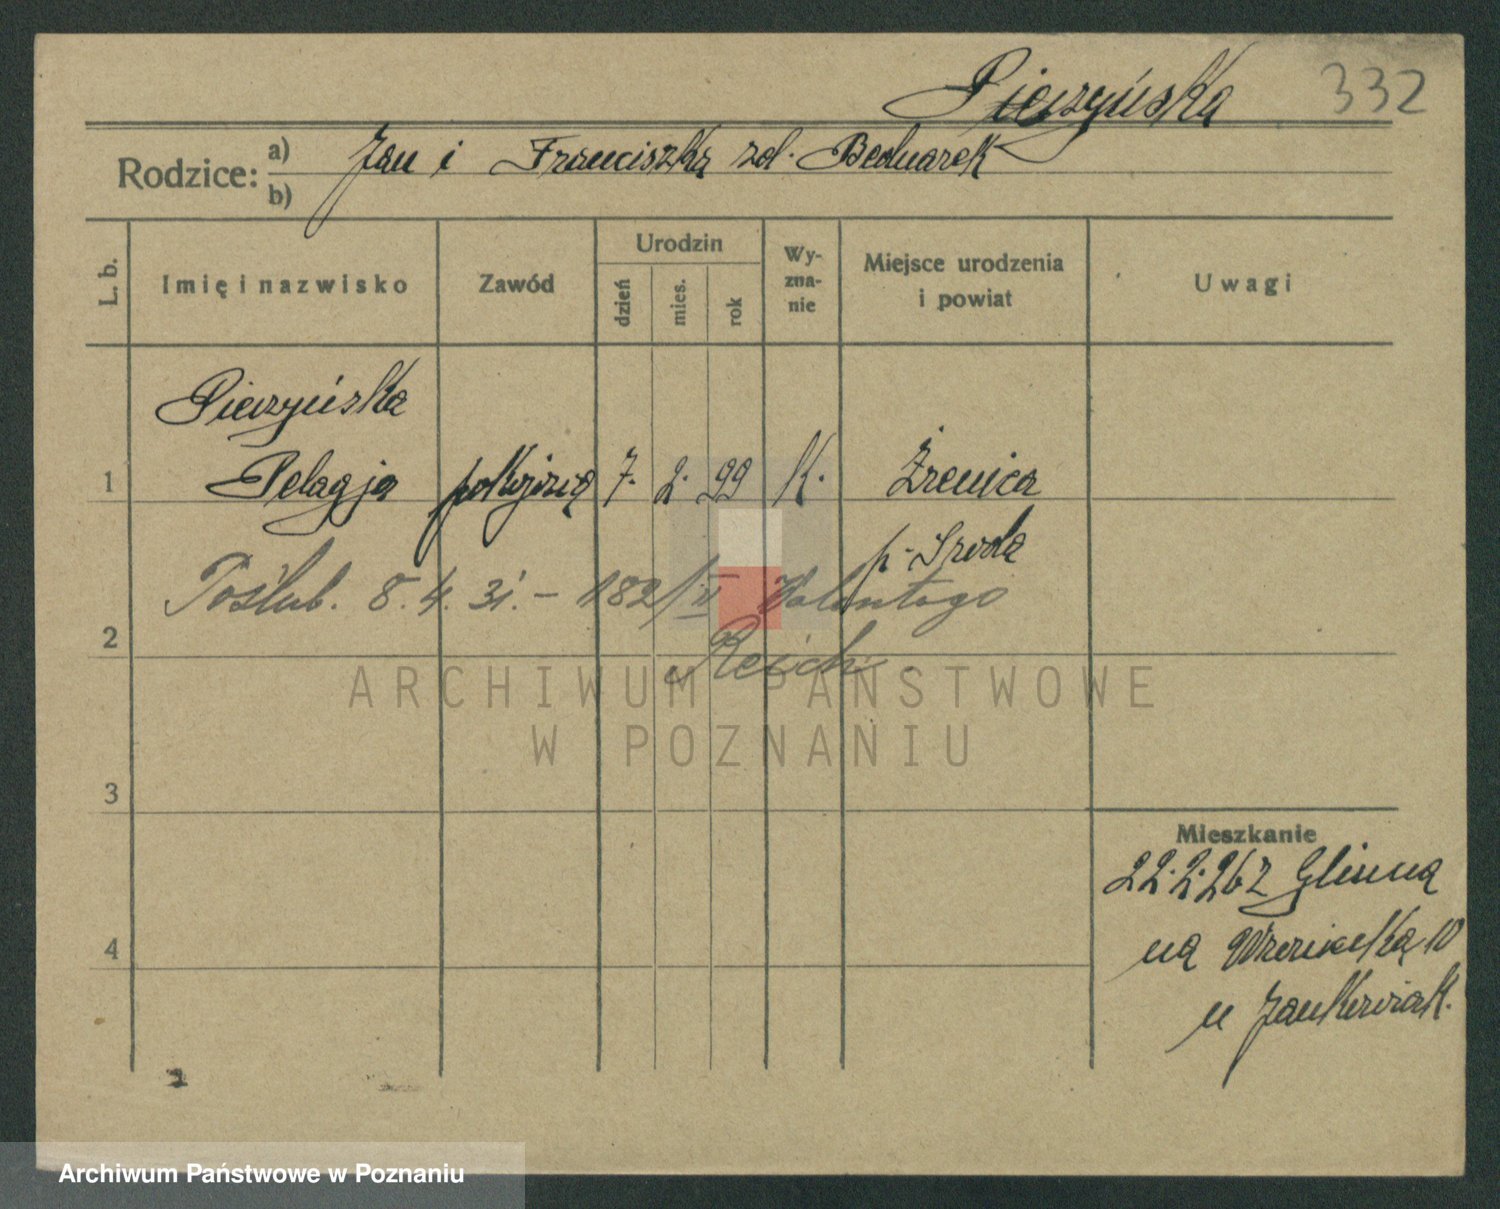 Pieczyńska 332
Rodzice: a) Jan i Franciszka zd. Bednarek
b)
L. b. Imię i nazwisko Zawód Urodzin dzień mies. rok Wy-zna-nie Miejsce urodzenia i powiat Uwagi
Pieczyńska
1 Pelagja pokojowa 7. 2. 99 K. Źrenica
p. Środa
Poślub. 8. 4. 31. – 182/II Walentego
2 Reich.
ARCHIWUM PAŃSTWOWE
W POZNANIU
3
Mieszkanie
22.2.26 z Glinna
na 10
4
u Jankowiak.
Archiwum Państwowe w Poznaniu